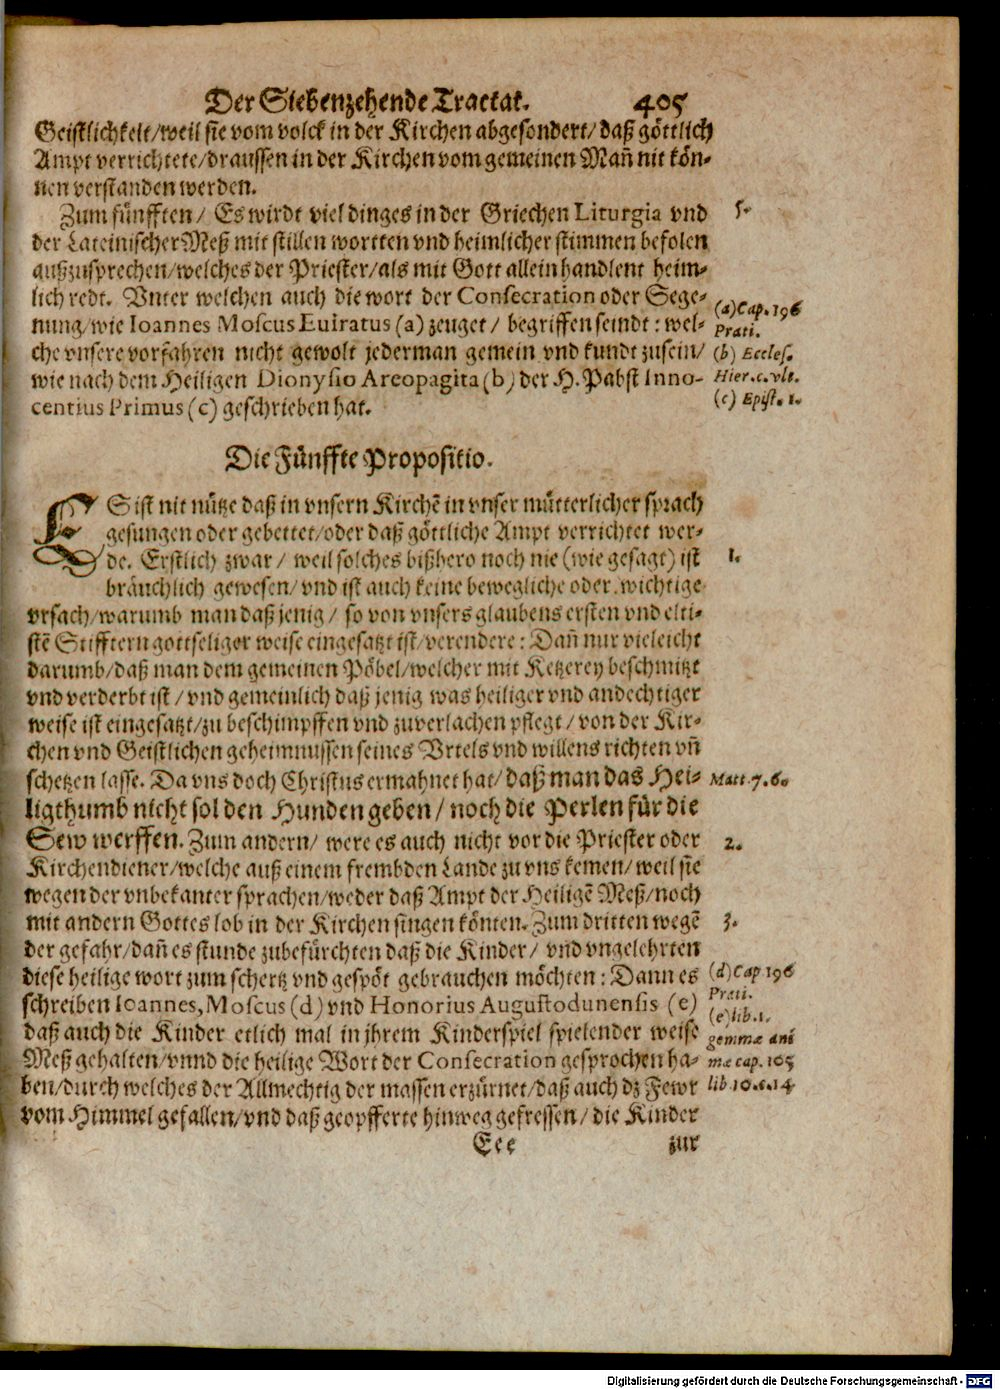 Der Siebenzehende Tractat. 405
Geistlichkeit/weil sie vom volck in der Kirchen abgesondert/daß göttlich
Ampt verrichtete/draussen in der Kirchen vom gemeinen Mañ nit kön-
nen verstanden werden.
Zum fünfften/ Es wirdt viel dinges in der Griechen Liturgia vnd
5.
der Lateinischer Meß mit stillen wortten vnd heimlicher stimmen befolen
außzusprechen/welches der Priester/als mit Gott allein handlent heim-
lich redt. Vnter welchen auch die wort der Consecration oder Sege-
(a)Cap. 196
nung/wie Ioannes Moscus Euiratus (a) zeuget/ begriffen seindt: wel-
Prati.
che vnsere vorfahren nicht gewolt jederman gemein vnd kundt zusein/
(b) Eccles.
wie nach dem Heiligen Dionysio Areopagita (b) der H. Pabst Inno-
Hier. c. vlt.
centius Primus (c) geschrieben hat.
(c) Epist. 1.
Die Fünffte Propositio.
ES ist nit nütze daß in vnsern Kirchē in vnser mütterlicher sprach
gesungen oder gebettet/oder daß göttliche Ampt verrichtet wer-
de. Erstlich zwar/ weil solches bißhero noch nie (wie gesagt) ist
1.
bräuchlich gewesen/ vnd ist auch keine bewegliche oder wichtige
vrsach/warumb man daß jenig/ so von vnsers glaubens ersten vnd elti-
stē Stifftern gottseliger weise eingesatzt ist/verendere: Dañ nur vieleicht
darumb/daß man dem gemeinen Pöbel/welcher mit Ketzerey beschmitzt
vnd verderbt ist/ vnd gemeinlich daß jenig was heiliger vnd andechtiger
weise ist eingesatzt/zu beschimpffen vnd zuverlachen pflegt/ von der Kir-
chen vnd Geistlichen geheimnussen seines Vrtels vnd willens richten vñ
schetzen lasse. Da vns doch Christus ermahnet hat/daß man das Hei-
Matt. 7. 6.
ligthumb nicht sol den Hunden geben/ noch die Perlen für die
Sew werffen. Zum andern/ were es auch nicht vor die Priester oder
2.
Kirchendiener/welche auß einem frembden Lande zu vns kemen/ weil sie
wegen der vnbekanter sprachen/weder daß Ampt der Heiligē Meß/noch
mit andern Gottes lob in der Kirchen singen könten. Zum dritten wegē
3.
der gefahr/dañ es stunde zubefürchten daß die Kinder/ vnd vngelehrten
diese heilige wort zum schertz vnd gespöt gebrauchen möchten: Dann es
(d)Cap 196
schreiben Ioannes, Moscus (d) vnd Honorius Augustodunensis (e)
Prati.
(e)lib. 1.
daß auch die Kinder etlich mal in jhrem Kinderspiel spielender weise
gemmæ ani
Meß gehalten/vnnd die heilige Wort der Consecration gesprochen ha-
mæ cap. 105
ben/durch welches der Allmechtig der massen erzürnet/daß auch dz Fewr
lib 10. c. 14
vom Himmel gefallen/vnd daß geopfferte hinweg gefressen/ die Kinder
Eee zur
Digitalisierung gefördert durch die Deutsche Forschungsgemeinschaft - DFG